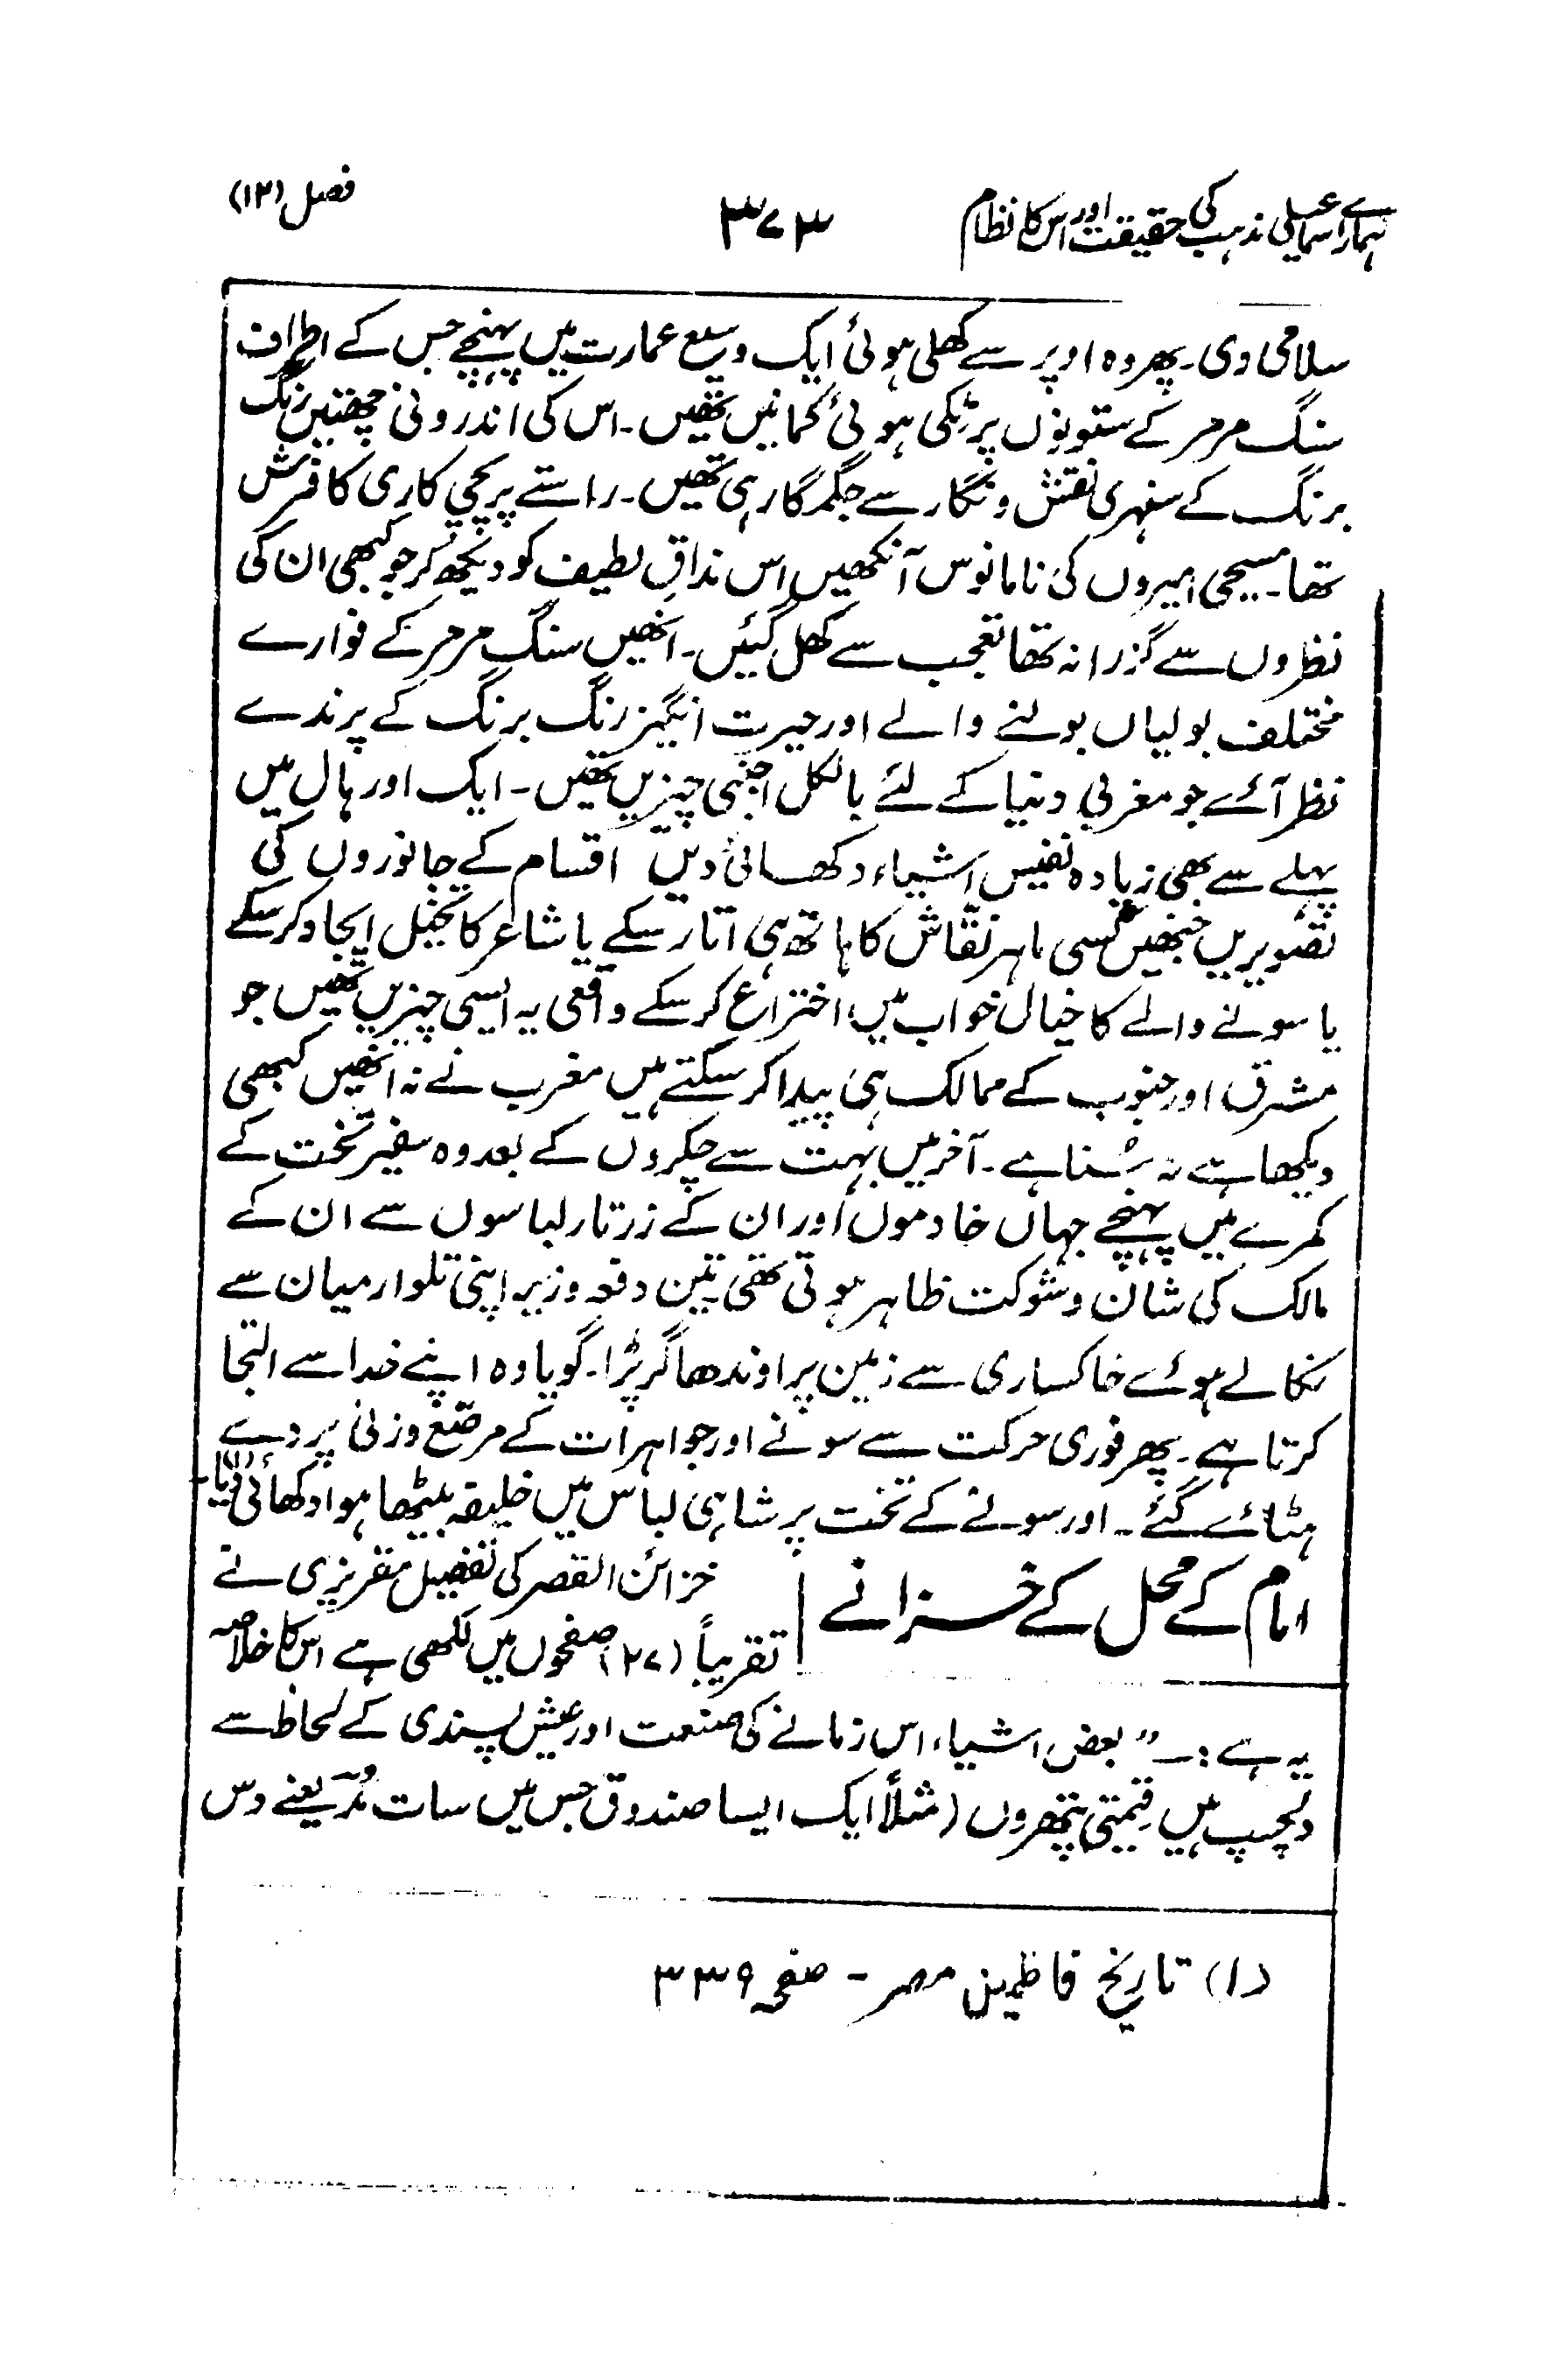 ہمارے اسماعیلی مذہب کی حقیقت اور اس کا نظام
۳۷۳
فصل (۱۲)
سلامی دی۔ پھر وہ اوپر سے کھلی ہوئی ایک وسیع عمارت میں پہنچے جس کے اطراف
سنگ مرمر کے ستونوں پر ٹِکی ہوئی کمانیں تھیں۔ اس کی اندرونی چھتیں رنگ
برنگ کے سنہری نقش و نگار سے جگمگا رہی تھیں۔ راستے پر پچّی کاری کا فرش
تھا۔ مسیحی امیروں کی نامانوس آنکھیں اس مذاقِ لطیف کو دیکھ کر جو کبھی ان کی
نظروں سے گزرا نہ تھا تعجب سے کھل گئیں۔ انھیں سنگِ مرمر کے فوارے
مختلف بولیاں بولنے والے اور حیرت انگیز رنگ برنگ کے پرندے
نظر آئے جو مغربی دنیا کے لئے بالکل اجنبی چیزیں تھیں۔ ایک اور ہال میں
پہلے سے بھی زیادہ نفیس اشیاء دکھائی دیں اقسام کے جانوروں کی
تصویریں جنھیں کسی ماہر نقّاش کا ہاتھ ہی اتار سکے یا شاعر کا تخیّل ایجاد کر سکے
یا سونے والے کا خیال خواب میں اختراع کر سکے واقعی یہ ایسی چیزیں تھیں جو
مشرق اور جنوب کے ممالک ہی پیدا کر سکتے ہیں مغرب نے نہ انھیں کبھی
دیکھا ہے نہ سُنا ہے۔ آخر میں بہت سے چکروں کے بعد وہ سفیر تخت کے
کمرے میں پہنچے جہاں خادموں اور ان کے زرتار لباسوں سے ان کے
مالک کی شان و شوکت ظاہر ہوتی تھی تین دفعہ وزیر اپنی تلوار میان سے
نکالے ہوئے خاکساری سے زمین پر اوندھا گر پڑا۔ گویا وہ اپنے خدا سے التجا
کرتا ہے۔ پھر فوری حرکت سے سونے اور جواہرات کے مرصّع وزنی پردے
ہٹائے گئے۔ اور سونے کے تخت پر شاہی لباس میں خلیفہ بیٹھا ہوا دکھائی دیا۔(۱)
امام کے محل کے خزانے
خزائن القصر کی تفصیل مقریزی نے
تقریباً (۲۷) صفحوں میں لکھی ہے اس کا خلاصہ
یہ ہے :۔ ”بعض اشیاء اس زمانے کی صنعت اور عیش پسندی کے لحاظ سے
دلچسپ ہیں قیمتی پتھروں (مثلاً ایک ایسا صندوق جس میں سات مُدّ یعنے دس
(۱) تاریخ فاطمیین مصر ۔ صفحہ ۳۳۹